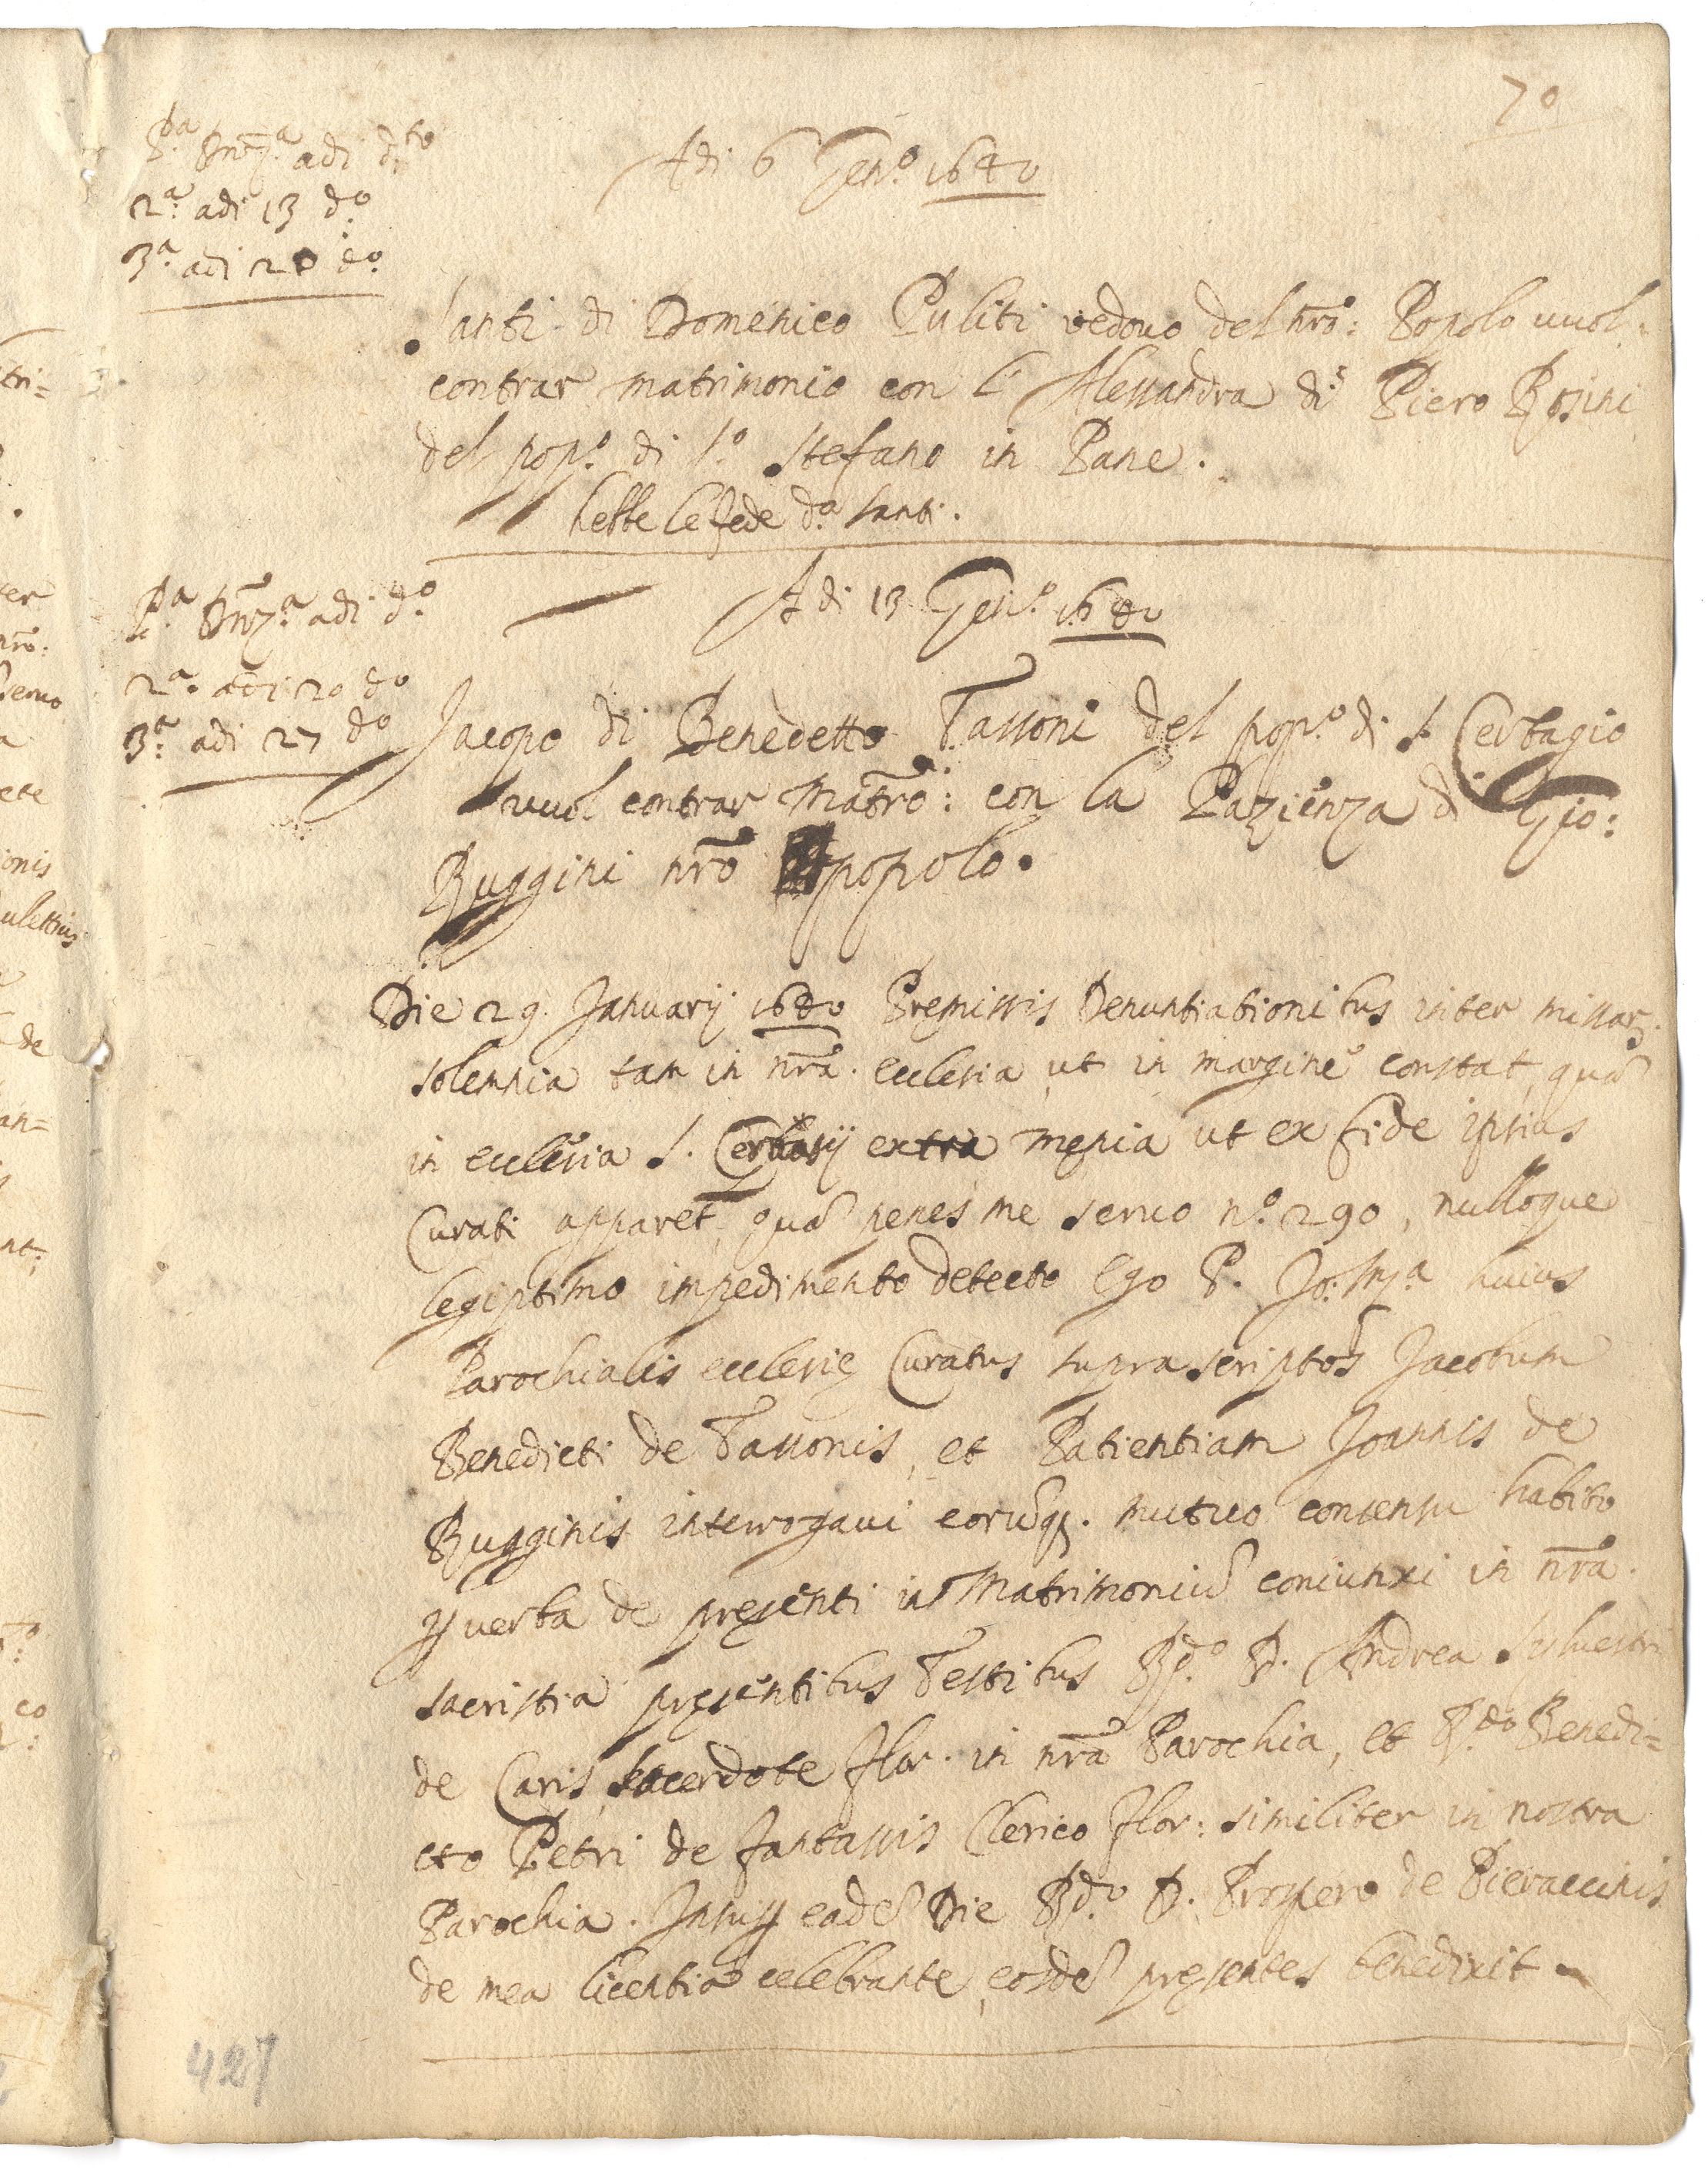 70
P.a Dnz.a adi d.to
2.a adi 13 d.o
3.a adi 20 d.o
Adi 6 Gen.o 1640
Santi di Domenico Puliti vedovo del nro: Popolo vuol
contrar matrimonio con l' Alessandra di Piero Rosini
del pop.o di S.o Stefano in Pane.
hebbe le fede d.o Santi.
P.a Dnz.a adi d.o
2.a adi 20 d.o
3.a adi 27 d.o
Adi 13 Gen.o 1640
Jacopo di Benedetto Tassoni del pop.o di S. Cerbagio
vuol contrar Matro: con la Pazienza di Gio:
Ruggini nro popolo.
Die 29. Januarij 1640 Premissis Denuntiationibus inter missar.
solemnia tam in nra. ecclesia ut in margine constat, quã
in ecclesia S. extra menia ut ex fide ipsius
Curati apparet, quã penes me servo n.o 290, nulloque
legiptimo impedimento detecto Ego P. Jo: M.a huius
Parochialis ecclesię Curatus suprascriptos Jacobum
Benedicti de Tassonis, et Patientiam Joannis de
Rugginis interrogavi eorũq. mutuo consensu habito
p verba de pręsenti in Matrimoniũ coniunxi in nra.
sacristia pręsentibus Testibus R.do D. Andrea Sylvestri
de Caris, sacerdote Flor. in nra Parochia, et R.do Benedi=
cto Petri de Fantassis Clerico Flor: similiter in nostra
Parochia. Insup eadẽ Die R.do D. Prospero de Pieraccinis
de mea licentia celebrante, eosdẽ pręsentes benedixit
427